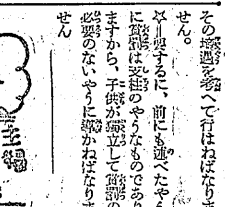 その境遇を考へて行はねばなりま
せん。
要するに、前にも述べたやう
に賞罰は支柱のやうなものであり
ますから、子供が獨立して賞罰の
必要のないやうに導かねばなりま
せん